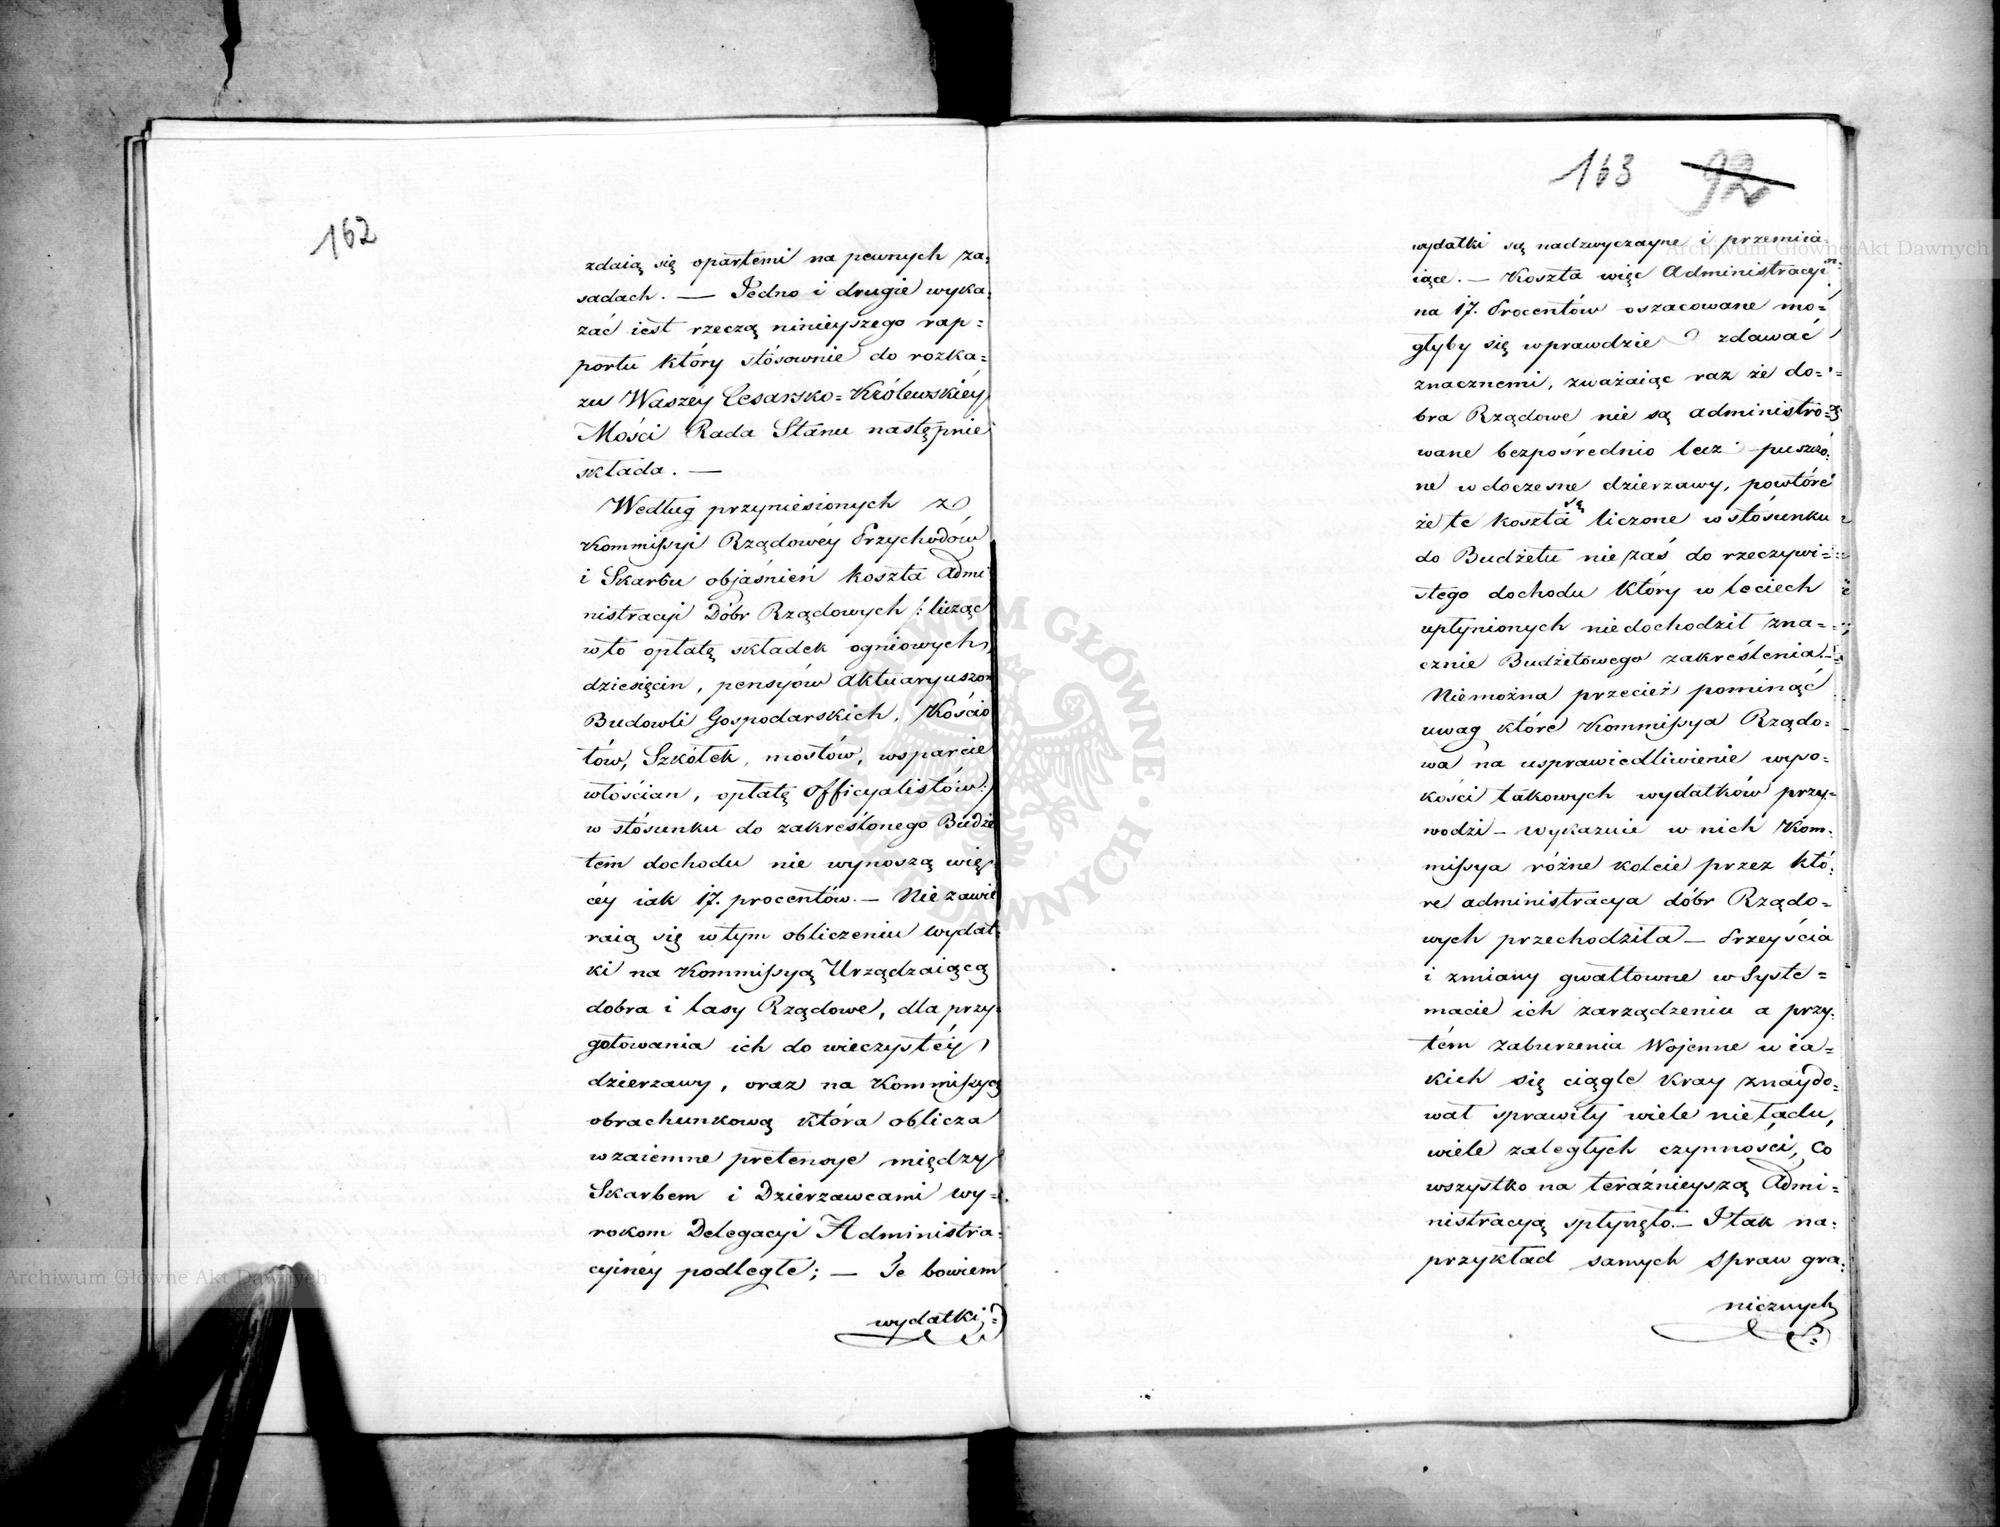 162
zdaią się opartemi na pewnych za=
sadach. — Jedno i drugie wyka=
zać iest rzeczą ninieyszego rap=
portu który stósownie do rozka=
zu Waszéy Cesarsko=Królewskiéy
Mości Rada Stanu następnie
składa. —
Według przyniesionych z
Kommissyi Rządowéy Przychodów
i Skarbu objaśnień koszta Admi
nistracyi Dóbr Rządowych /: licząc
w to opłatę składek ogniowych,
dziesięcin, pensyów Aktuaryuszom
Budowli Gospodarskich, Kościo
łów, Szkółek, mostów, wsparcie
włościan, opłatę Officyalistów:/
w stósunku do zakreślonego Budże
tem dochodu nie wynoszą wię=
céy iak 17. procentów. — Nie zawie
raią się w tym obliczeniu wydat=
ki na Kommissyą Urządzaiącą
dobra i lasy Rządowe, dla przy=
gotowania ich do wieczystéy
dzierzawy, oraz na Kommissyą
obrachunkową która oblicza
wzaiemne pretensye między
Skarbem i Dzierzawcami wy=
rokom Delegacyi Administra=
cyinéy podległe; — Te bowiem
wydatki
163 92
wydatki są nadzwyczayne i przemiia=
iące. — Koszta więc Administracyi
na 17. Procentów oszacowane mo=
głyby się wprawdzie zdawać
znacznemi, zważaiąc raz że do=
bra Rządowe nie są administro=
wane bezpośrednio lecz puszczo=
ne w doczesne dzierzawy, powtóré
że te koszta są liczone w stósunku
do Budżetu nie zaś do rzeczywi=
stego dochodu który w leciech
upłynionych niedochodził zna=
cznie Budżetowego zakreślenia. —
Niemożna przecież pominąć
uwag które Kommissya Rządo=
wa na usprawiedliwienie wyso=
kości takowych wydatków przy=
wodzi — wykazuie w nich Kom=
missya różne koleie przez któ=
re administracya dóbr Rządo=
wych przechodziła — Przeyścia
i zmiany gwałtowne w Syste=
macie ich zarządzeniu a przy=
tém zaburzenia Wojenne w ia=
kich się ciągle Kray znaydo=
wał sprawiły wiele nieładu,
wiele zaległych czynności, co
wszystko na teraźnieyszą Admi=
nistracyą spłynęło. — I tak na=
przykład samych Spraw gra=
nicznych
Archiwum Główne Akt Dawnych
Archiwum Główne Akt Dawnych
ARCHIWUM GŁÓWNE · AKT DAWNYCH ·